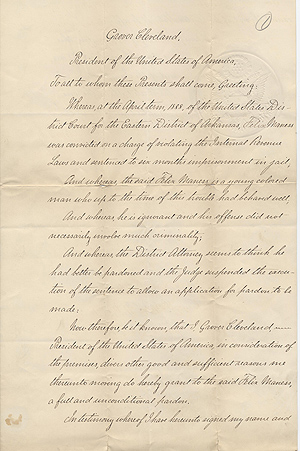 Grover Cleveland,
President of the United States of America,
To all to whom these Presents shall come, Greeting:
Whereas, at the April term, 1888, of the United States Dis-
trict Court for the Eastern District of Arkansas, Felix Maness
was convicted on a charge of violating the Internal Revenue
Laws and sentenced to six months imprisonment in jail;
And whereas, the said Felix Maness is a young colored
man who up to the time of this trouble had behaved well;
And whereas he is ignorant and his offense did not
necessarily involve much criminality;
And whereas, the District Attorney seems to think he
had better be pardoned and the Judge suspended the execu-
tion of the sentence to allow an application for pardon to be
made;
Now therefore be it known, that I, Grover Cleveland,
President of the United States of America, in consideration of
the premises, divers other good and sufficient reasons me
thereunto moving do hereby grant to the said Felix Maness,
a full and unconditional pardon.
In testimony whereof I have hereunto signed my name and